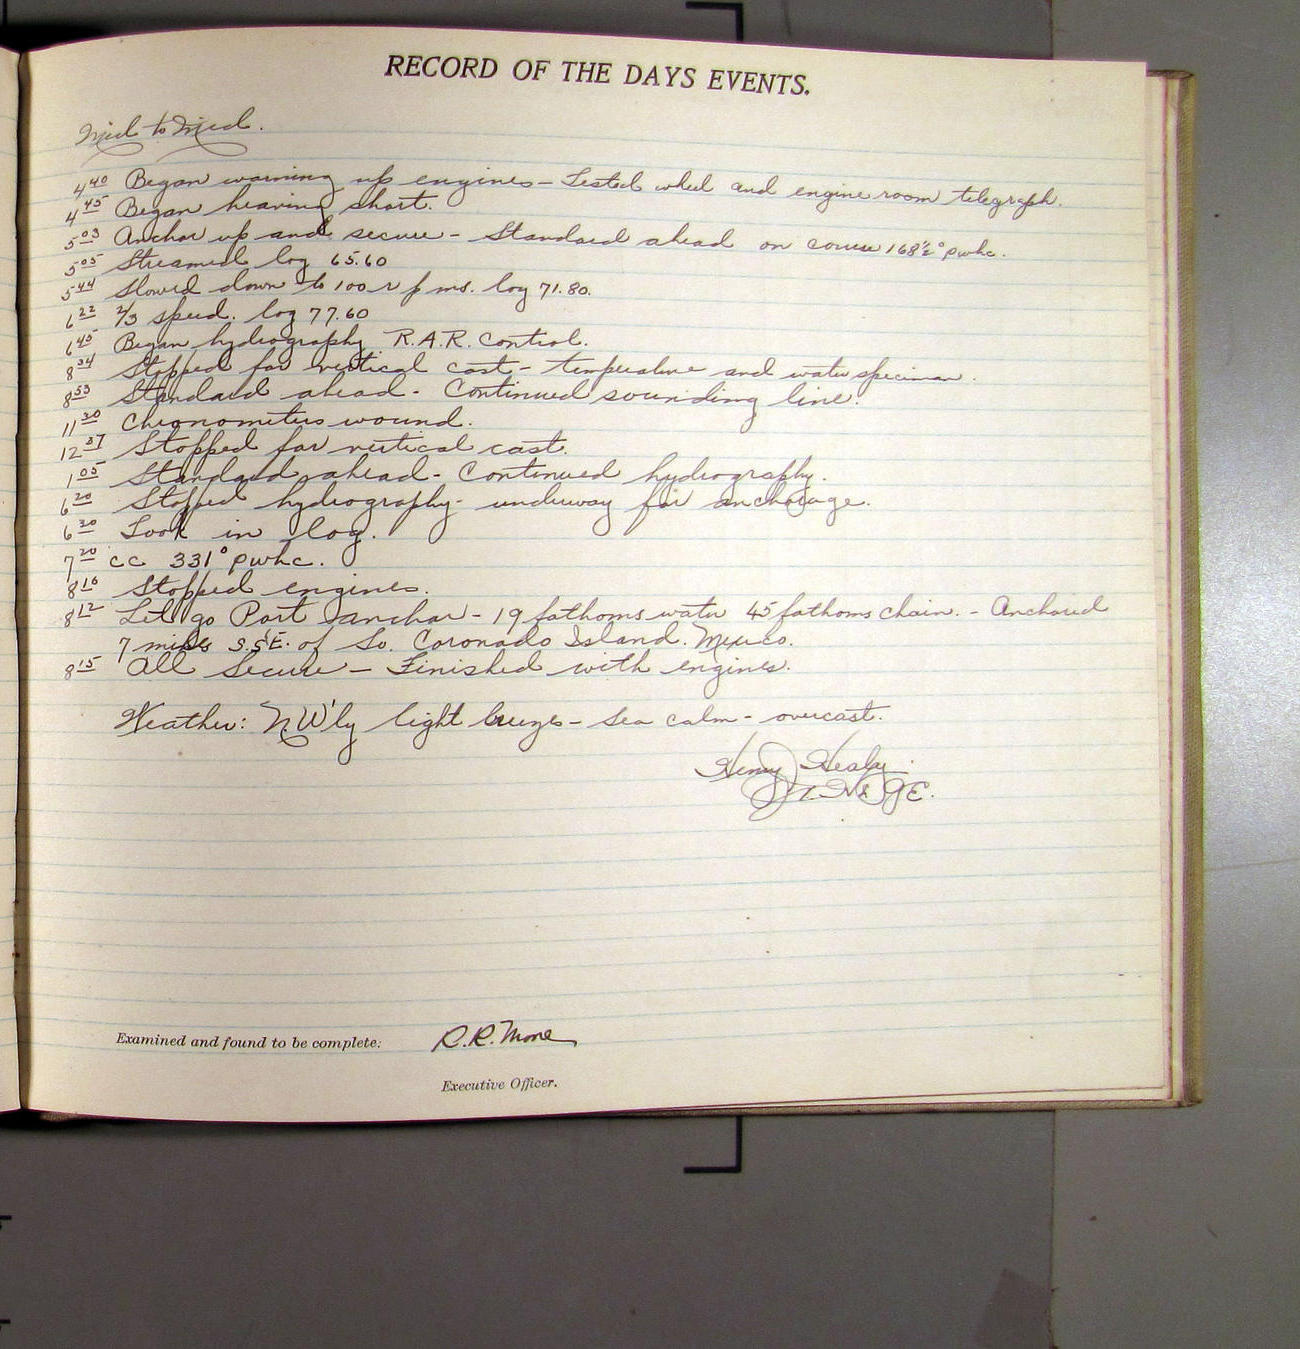 RECORD OF THE DAYS EVENTS.
Mid to Mid.
4 40 Began warming up engines - Tested wheel and engine room telegraph.
4 45 Began heaving short.
5 03 Anchor up and secure - Standard ahead on course 168½° pwhc.
5 05 Streamed log 65.60
5 44 Slowed down to 100 r p ms. log 71.80.
6 22 2/3 speed. log 77.60
6 45 Began hydrography R.A.R. Control.
8 34 Stopped for vertical cast - temperature and water specimen.
8 53 Standard ahead - Continued sounding line.
11 30 Chronometers wound.
12 37 Stopped for vertical cast.
1 05 Standard ahead - Continued hydrography.
6 20 Stopped hydrography - underway for anchorage.
6 30 Took in log.
7 20 cc 331° pwhc.
8 10 Stopped engines.
8 12 Let go Port anchor - 19 fathoms water 45 fathoms chain. - Anchored
7 miles S.S.E. of So. Coronado Island. Mexico.
8 15 All Secure - Finished with engines.
Weather: N.W'ly light breeze - Sea calm - overcast.
Henry Healy.
Examined and found to be complete: R.R. Moore
Executive Officer.